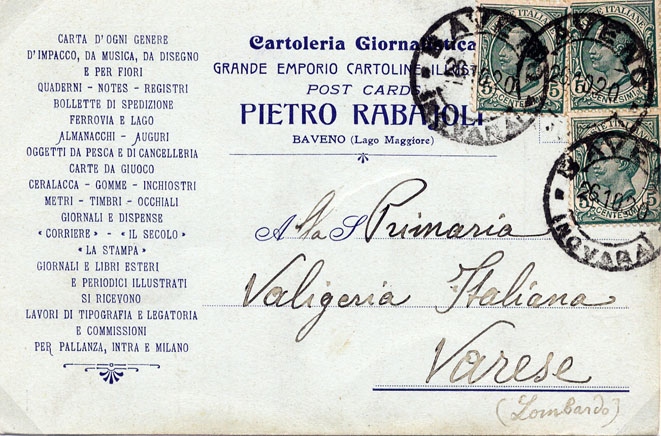 CARTA D'OGNI GENERE
D'IMPACCO, DA MUSICA, DA DISEGNO
E PER FIORI
QUADERNI - NOTES - REGISTRI
BOLLETTE DI SPEDIZIONE
FERROVIA E LAGO
ALMANACCHI - AUGURI
OGGETTI DA PESCA E DI CANCELLERIA
CARTE DA GIUOCO
CERALACCA - GOMME - INCHIOSTRI
METRI - TIMBRI - OCCHIALI
GIORNALI E DISPENSE
« CORRIERE » - « IL SECOLO »
« LA STAMPA »
GIORNALI E LIBRI ESTERI
E PERIODICI ILLUSTRATI
SI RICEVONO
LAVORI DI TIPOGRAFIA E LEGATORIA
E COMMISSIONI
PER PALLANZA, INTRA E MILANO
Cartoleria Giornalistica
GRANDE EMPORIO CARTOLINE ILLUST
POST CARDS
PIETRO RABAJOLI
BAVENO (Lago Maggiore)
Alla S Primaria
Valigeria Italiana
Varese
(Lombardo)
POSTE ITALIANE
5 CENTESIMI 5
BAVENO
(NOVARA)